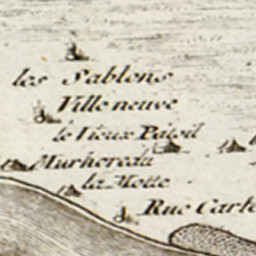 les Sablons
Ville neuve
le Vieux Patoil
Murhereau
la Motte
Rue Carle